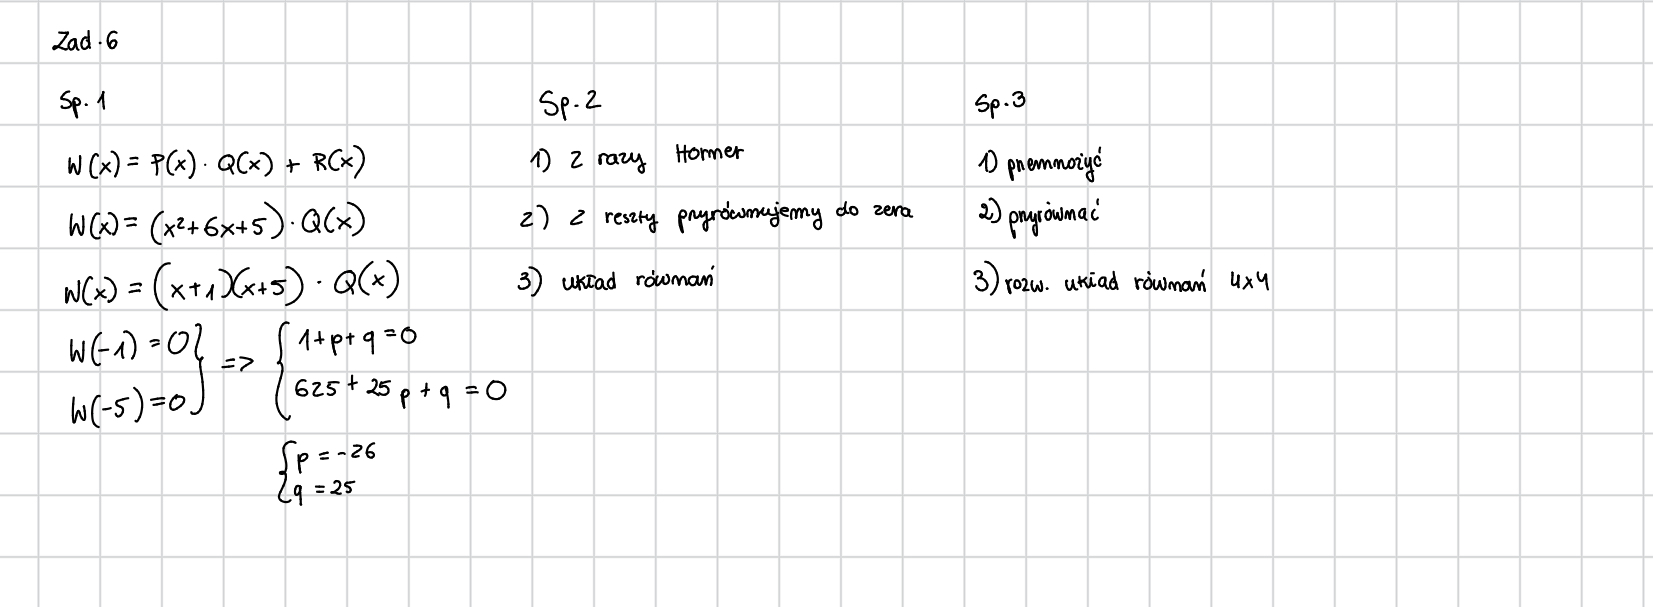 Zad. 6
Sp. 1
W(x) = P(x) · Q(x) + R(x)
W(x) = (x²+6x+5) · Q(x)
W(x) = (x+1)(x+5) · Q(x)
W(-1) = 0 } => { 1+p+q=0
W(-5)=0 } { 625+25p+q=0
{ p = -26
{ q = 25
Sp. 2
1) 2 razy Horner
2) 2 reszty przyrównujemy do zera
3) układ równań
Sp. 3
1) przemnożyć
2) przyrównać
3) rozw. układ równań 4x4